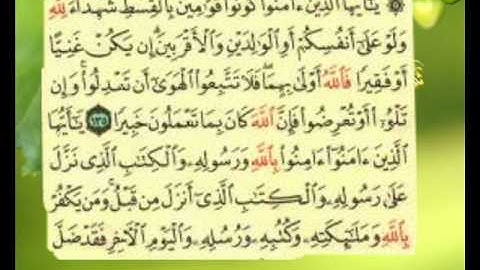 ۞ يَٰٓأَيُّهَا ٱلَّذِينَ ءَامَنُوا۟ كُونُوا۟ قَوَّٰمِينَ بِٱلْقِسْطِ شُهَدَآءَ لِلَّهِ
وَلَوْ عَلَىٰٓ أَنفُسِكُمْ أَوِ ٱلْوَٰلِدَيْنِ وَٱلْأَقْرَبِينَ ۚ إِن يَكُنْ غَنِيًّا
أَوْ فَقِيرًا فَٱللَّهُ أَوْلَىٰ بِهِمَا ۖ فَلَا تَتَّبِعُوا۟ ٱلْهَوَىٰٓ أَن تَعْدِلُوا۟ ۚ وَإِن
تَلْوُۥٓا۟ أَوْ تُعْرِضُوا۟ فَإِنَّ ٱللَّهَ كَانَ بِمَا تَعْمَلُونَ خَبِيرًا ١٣٥ يَٰٓأَيُّهَا
ٱلَّذِينَ ءَامَنُوٓا۟ ءَامِنُوا۟ بِٱللَّهِ وَرَسُولِهِۦ وَٱلْكِتَٰبِ ٱلَّذِى نَزَّلَ
عَلَىٰ رَسُولِهِۦ وَٱلْكِتَٰبِ ٱلَّذِىٓ أَنزَلَ مِن قَبْلُ ۚ وَمَن يَكْفُرْ
بِٱللَّهِ وَمَلَٰٓئِكَتِهِۦ وَكُتُبِهِۦ وَرُسُلِهِۦ وَٱلْيَوْمِ ٱلْـَٔاخِرِ فَقَدْ ضَلَّ